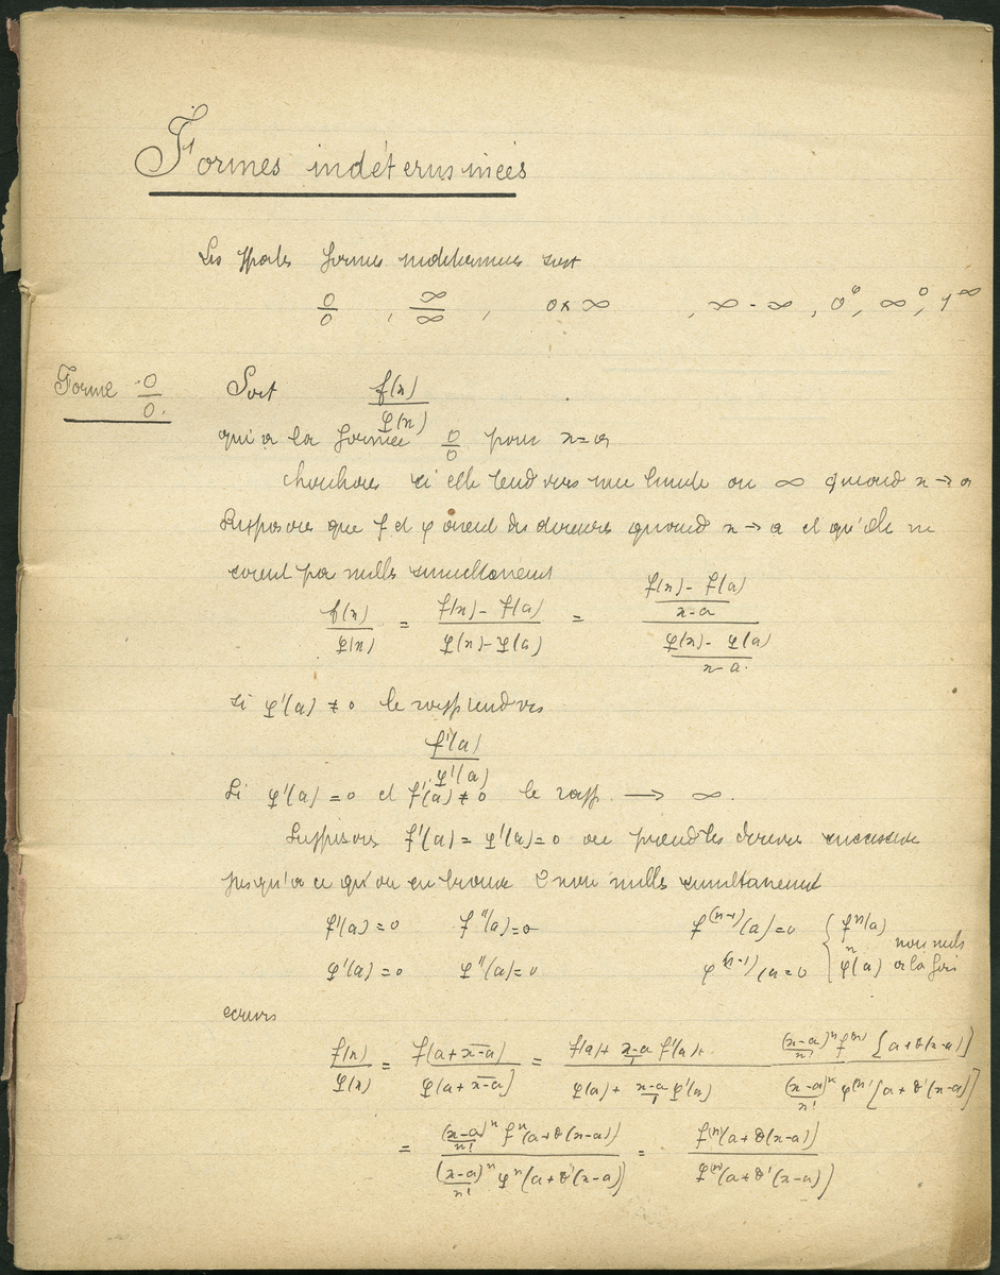 Formes indéterminées
Les ppales formes indéterminées sont
0/0 , ∞/∞ , 0×∞ , ∞ - ∞ , 0⁰, ∞⁰, 1^∞
Forme 0/0. Soit f(x)/φ(x)
qui a la forme 0/0 pour x=a
cherchons si elle tend vers une limite ou ∞ quand x → a
Supposons que f et φ aient des dérivées quand x → a et qu'elles ne
soient pas nulles simultanément
f(x)/φ(x) = (f(x) - f(a))/(φ(x) - φ(a)) = ((f(x) - f(a))/(x-a))/((φ(x) - φ(a))/(x-a))
si φ'(a) ≠ 0 le rapp tend vers
f'(a)/φ'(a)
Si φ'(a) = 0 et f'(a) ≠ 0 le rapp. → ∞.
Supposons f'(a) = φ'(a) = 0 on prend les dérivées successives
jusqu'à ce qu'on en trouve 2 non nulles simultanément
f'(a) = 0 f''(a) = 0 f^(n-1)(a) = 0 { f^n(a)
φ'(a) = 0 φ''(a) = 0 φ^(n-1)(a = 0 φ^n(a) non nuls à la fois
écrivons
f(x)/φ(x) = f(a + x-a)/φ(a + x-a) = (f(a) + (x-a)/1 f'(a) + (x-a)^n/n! f^(n) [a + θ(x-a)])/(φ(a) + (x-a)/1 φ'(a) (x-a)^n/n! φ^(n) [a + θ'(x-a)])
= ((x-a)^n/n! f^n(a + θ(x-a)))/((x-a)^n/n! φ^n(a + θ'(x-a))) = f^(n)(a + θ(x-a))/φ^(n)(a + θ'(x-a))